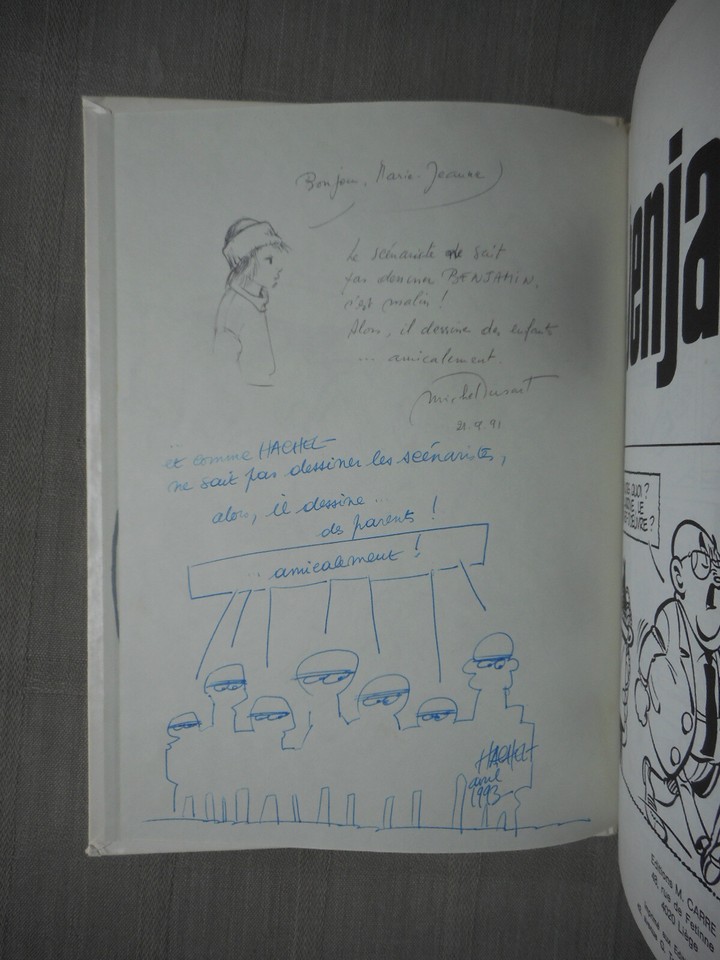 Bonjour, Marie-Jeanne
Le scénariste ne sait
pas dessiner BENJAMIN,
c'est malin !
Alors, il dessine des enfants
... amicalement.
Michel Dusart
21.4.91
et comme HACHEL
ne sait pas dessiner les scénaristes,
alors, il dessine ...
des parents !
... amicalement !
HACHEL
avril
1993
enja
QUOI ?
LE
?
Editions M. CARRE
48, rue de Fetinne
4020 Liège